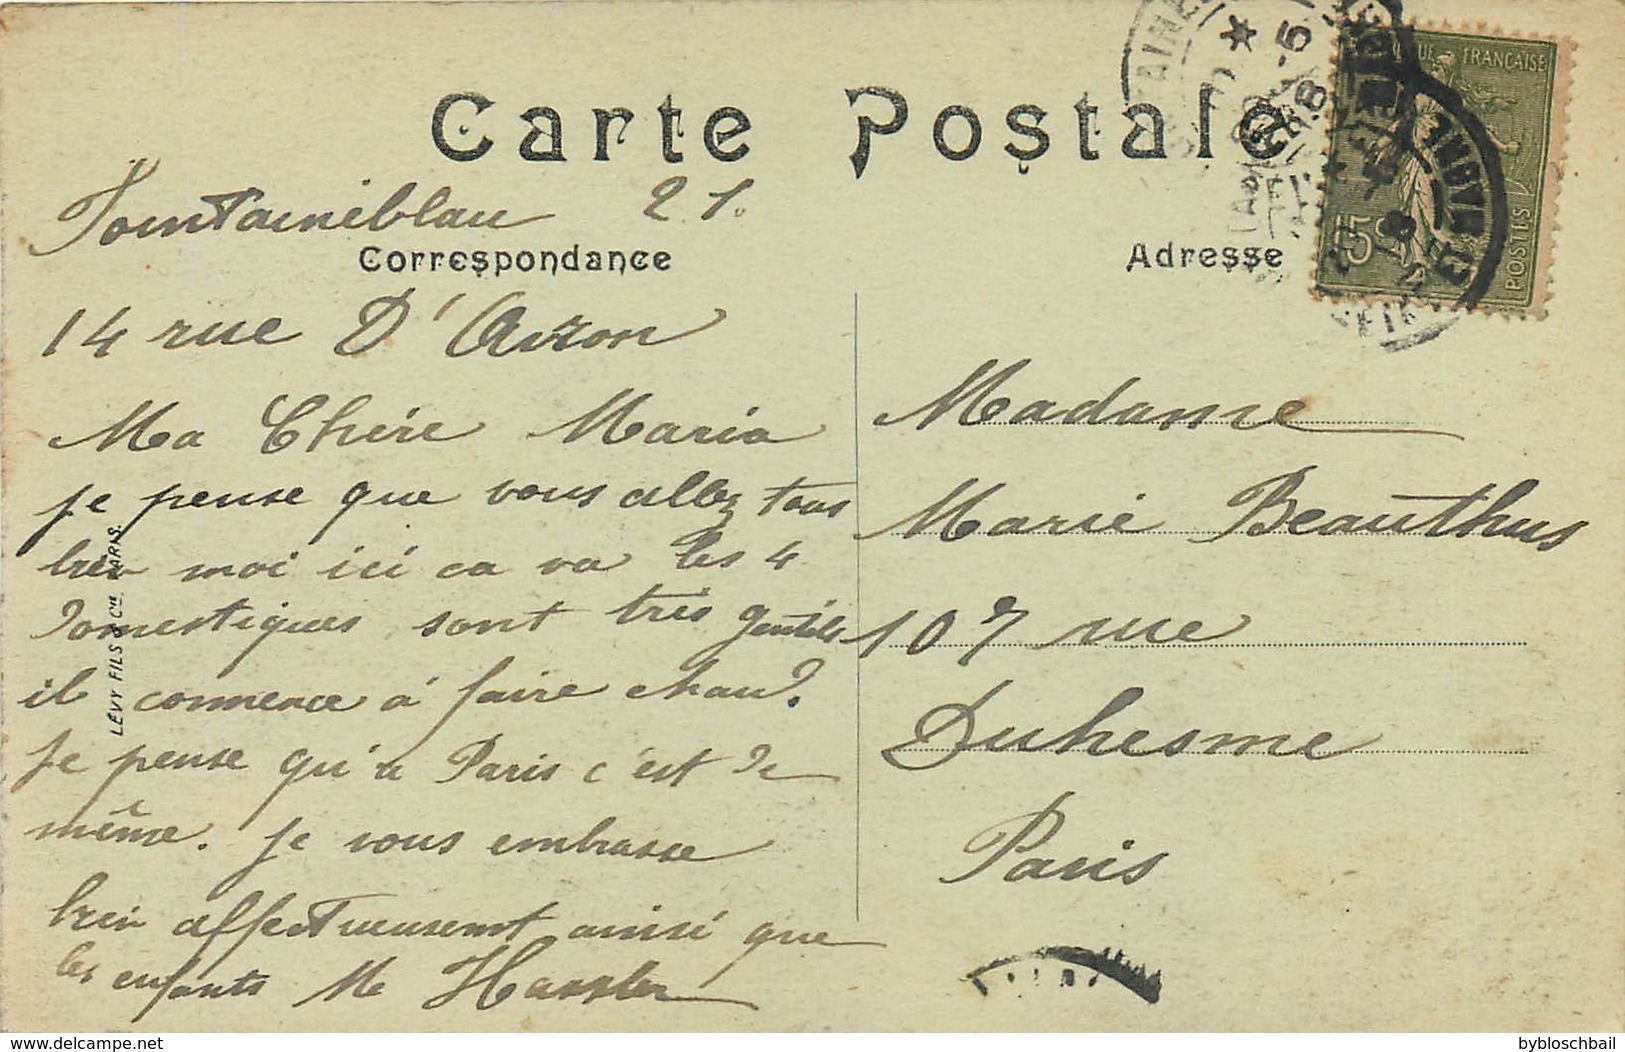 Carte Postale
Fontainiblau 21.
Correspondance
14 rue D'Avon
Ma Chére Maria
je pense que vous allez tous
bien moi ici ca va les 4
domestiques sont trés gentils
il commence á faire chaud.
je pense qu'a Paris c'est de
même. je vous embrasse
bien affectueusement ainsi que
les enfants M Hassler
LÉVY FILS & Cie PARIS.
Adresse
Madame
Marie Beauthus
107 rue
Duhesme
Paris
FRANÇAISE
15c
POSTES
bybloschbail